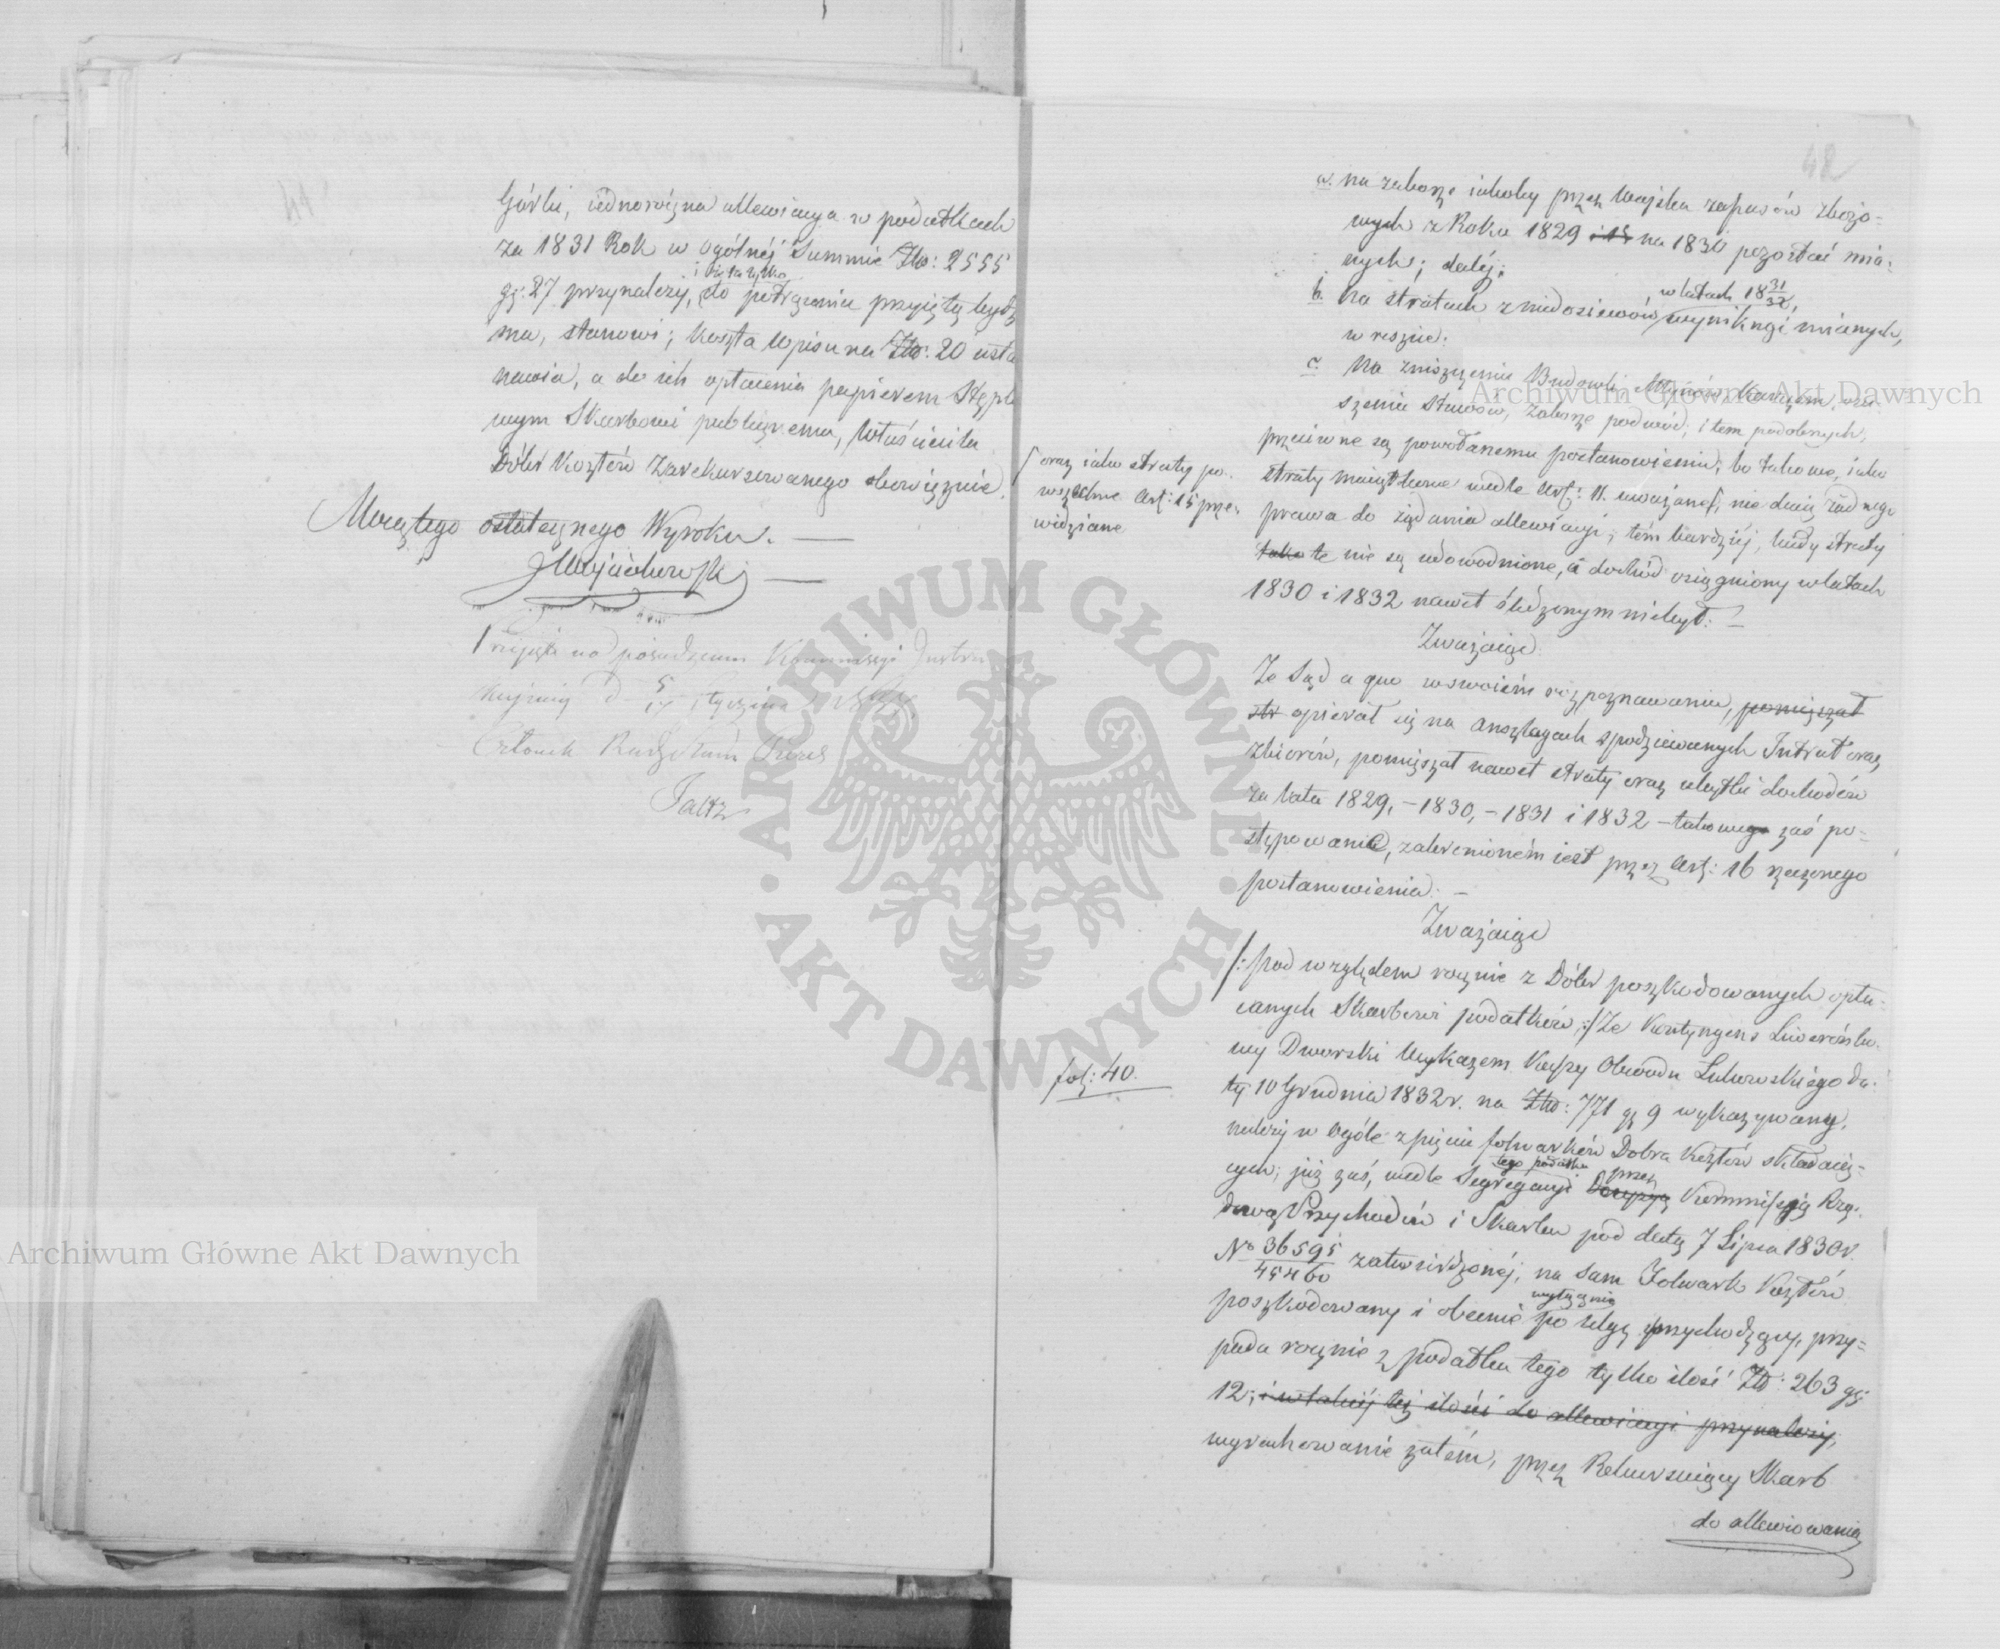 Górki, iednoroczna allewiacya w podatkach
za 1831 Rok w ogólnéj Summie Złto: 2555
gr. 27 przynależy, i
do potrącenia przyiętą bydź
ma, stanowi; koszta wpisu na Złto: 20 usta
nawia, a do ich opłacenia papierem Stęplo
wym Skarbowi publicznemu, Właściciela
Dóbr Kozłów Zarekursowanego obowięzuie.
Mocą tego ostatecznego Wyroku. —
JWojciechowski —
na posiedzeniu Kommissyi Instru
kcyiney d 5/17 Stycznia
Członek Rady Stanu Prezes
48
a. na zaborze iakoby przez Woyska zapasów zbożo-
wych z Roku 1829 i 18 na 1830 pozostać mia-
nych; daléj:
b. Na stratach z niedosiewów w latach 18 31/32, wyniknąć mianych,
w reszcie:
c. Na zniszczeniu Budowli, Młynów, Karczem,
szeniu stawów, zaborze podwód, i tem podobnych,
przeciwne są powołanemu postanowieniu, bo takowe, iako
straty maiątkowe wedle Art: 11. uważane, nie daią żadnego
prawa do żądania allewiacyi, tém bardziéj, kiedy straty
tako te nie są udowodnione, a dochód osiągniony w latach
1830 i 1832 nawet śledzonym niebył. —
/ oraz iako straty po-
wszechne Art: 15 prze-
widziane
Zważaiąc
Że Sąd a quo w swoiém rozpoznawaniu, pomięszał
str opierał się na Anszlagach spodziewanych Intrat oraz
zbiorów, pomięszał nawet straty oraz ubytki dochodów
za lata 1829, – 1830, – 1831 i 1832 – takowego zaś po-
stępowanie, zabronioném iest przez Art: 16 rzeczonego
postanowienia. —
Zważaiąc
/: pod względem rocznie z Dóbr poszkodowanych opła-
canych Skarbowi podatków, :/ Że Kontyngens Liwerunko-
wy Dworski Wykazem Kassy Obwodu Łukowskiego da-
tą 10 Grudnia 1832 r. na Złto: 771 gr 9 wykazywany,
fol: 40.
należy w ogóle z pięciu folwarków Dobra Kozłów składaią-
cych; już zaś, wedle Segregacyi tego podatku Decyzyą przez Kommissyą Rzą-
dową Przychodów i Skarbu pod datą 7 Lipca 1830 r.
No 36595/45460 zatwierdzonéj, na sam Folwark Kozłów
poszkodowany i obecnie wyłącznie po ulgę przychodzący, przy-
pada rocznie z podatku tego tylko ilość Złt: 263 gr:
12, i w takiéj téż ilości do allewiacyi przynależy,
wyrachowanie zatém, przez Rekursuiący Skarb
do allewiowania
Archiwum Główne Akt Dawnych
Archiwum Główne Akt Dawnych
ARCHIWUM GŁÓWNE • AKT DAWNYCH •